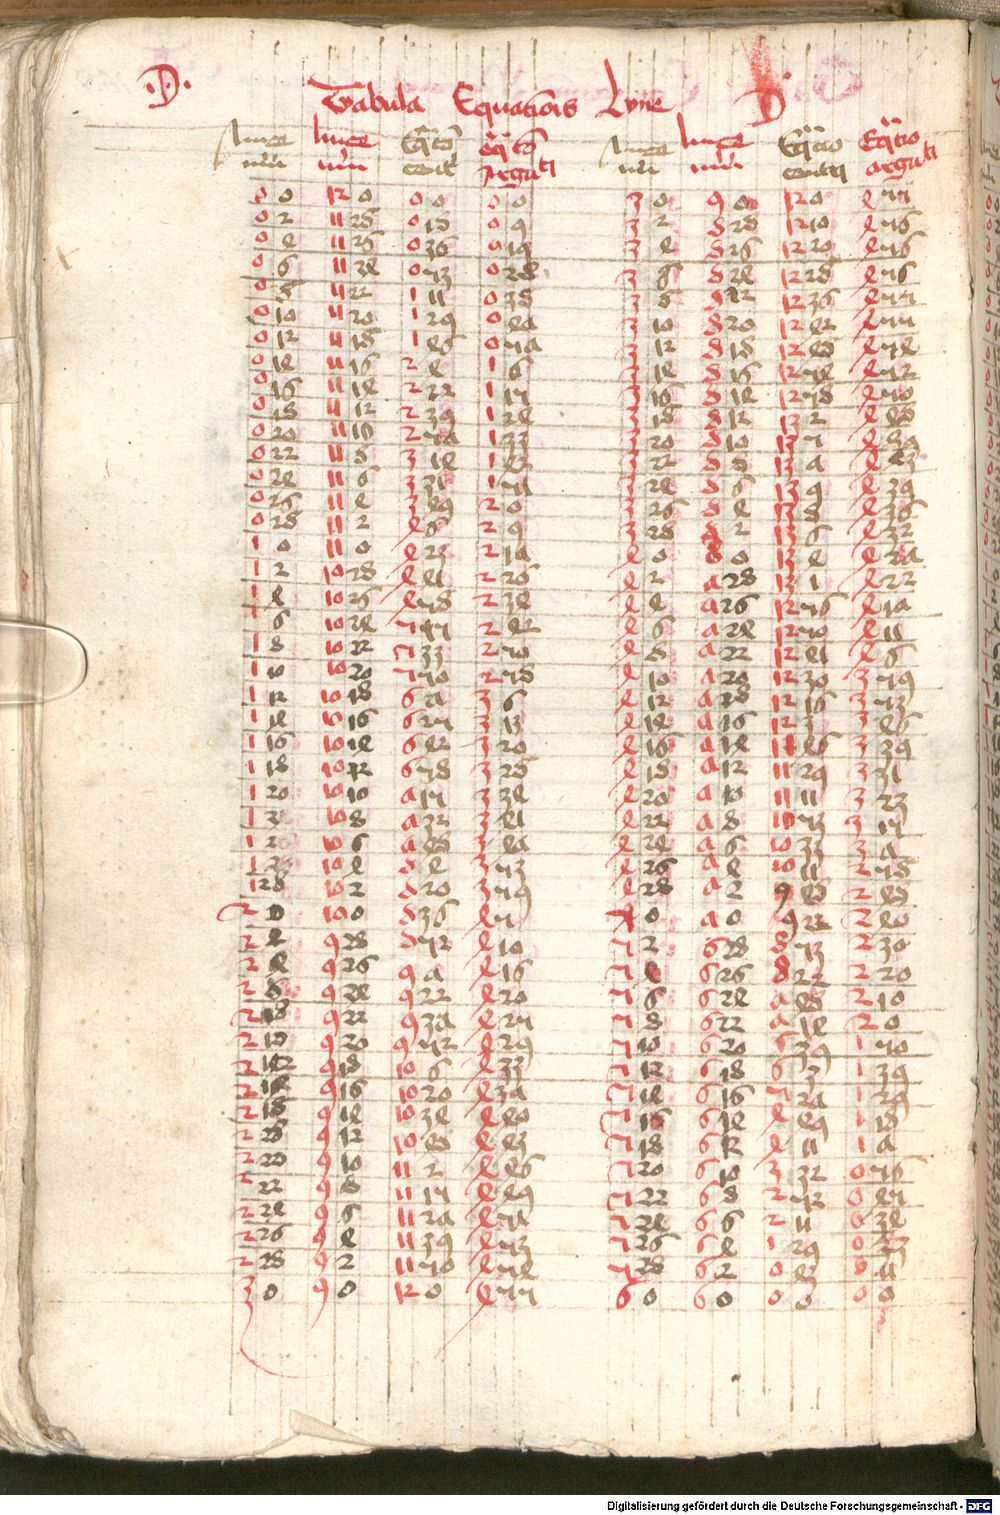 .D.
Tabula Equationis Lune D
0 0 12 0 0 0 0 0 3 0 9 0 12 0 4 55
0 2 11 28 0 18 0 9 3 2 8 28 12 10 4 56
0 4 11 26 0 36 0 19 3 4 8 26 12 20 4 56
0 6 11 24 0 53 0 28 3 6 8 24 12 28 4 56
0 8 11 22 1 11 0 38 3 8 8 22 12 36 4 55
0 10 11 20 1 29 0 47 3 10 8 20 12 42 4 55
0 12 11 18 1 46 0 57 3 12 8 18 12 48 4 54
0 14 11 16 2 4 1 6 3 14 8 16 12 54 4 52
0 16 11 14 2 22 1 15 3 16 8 14 12 58 4 50
0 18 11 12 2 39 1 24 3 18 8 12 13 2 4 48
0 20 11 10 2 57 1 33 3 20 8 10 13 5 4
0 22 11 8 3 14 1 43 3 22 8 8 13 7 4 43
0 24 11 6 3 31 1 3 24 8 6 13 9 4 39
0 26 11 4 3 48 2 0 3 26 8 4 13 8 4
0 28 11 2 4 6 2 9 3 28 8 2 13 6 4 32
1 0 11 0 4 23 2 17 4 0 8 0 13 4 4 27
1 2 10 28 4 41 2 26 4 2 7 28 13 1 4 22
1 4 10 26 4 58 2 34 4 4 7 26 12 56 4 17
1 6 10 24 5 15 2 42 4 6 7 24 12 50 4 11
1 8 10 22 5 33 2 50 4 8 7 22 12 41 4 6
1 10 10 20 5 50 2 58 4 10 7 20 12 30 3 59
1 12 10 18 6 7 3 6 4 12 7 18 12 16 3 53
1 14 10 16 6 25 3 13 4 14 7 16 12 3 3 46
1 16 10 14 6 42 3 20 4 16 7 14 11 46 3 39
1 18 10 12 6 58 3 28 4 18 7 12 11 29 3 31
1 20 10 10 7 15 3 34 4 20 7 10 11 11 3 23
1 22 10 8 7 32 3 41 4 22 7 8 10 53 3 15
1 24 10 6 7 48 3 47 4 24 7 6 10 33 3 7
1 26 10 4 8 4 3 53 4 26 7 4 10 11 2 58
1 28 10 2 8 20 3 59 4 28 7 2 9 48 2 48
2 0 10 0 8 36 4 5 5 0 7 0 9 22 2 40
2 2 9 28 8 52 4 10 5 2 6 28 8 53 2 30
2 4 9 26 9 7 4 16 5 4 6 26 8 22 2 20
2 6 9 24 9 22 4 20 5 6 6 24 7 48 2 10
2 8 9 22 9 37 4 25 5 8 6 22 7 14 2 0
2 10 9 20 9 52 4 29 5 10 6 20 6 39 1 50
2 12 9 18 10 6 4 33 5 12 6 18 6 3 1 39
2 14 9 16 10 20 4 37 5 14 6 16 5 27 1 29
2 16 9 14 10 34 4 40 5 16 6 14 4 49 1 18
2 18 9 12 10 48 4 43 5 18 6 12 4 11 1 7
2 20 9 10 11 2 4 46 5 20 6 10 3 32 0 56
2 22 9 8 11 15 4 49 5 22 6 8 2 52 0 45
2 24 9 6 11 27 4 51 5 24 6 6 2 11 0 34
2 26 9 4 11 39 4 53 5 26 6 4 1 29 0 23
2 28 9 2 11 50 4 54 5 28 6 2 0 43 0 11
3 0 9 0 12 0 4 55 6 0 6 0 0 0 0 0
Digitalisierung gefördert durch die Deutsche Forschungsgemeinschaft - DFG